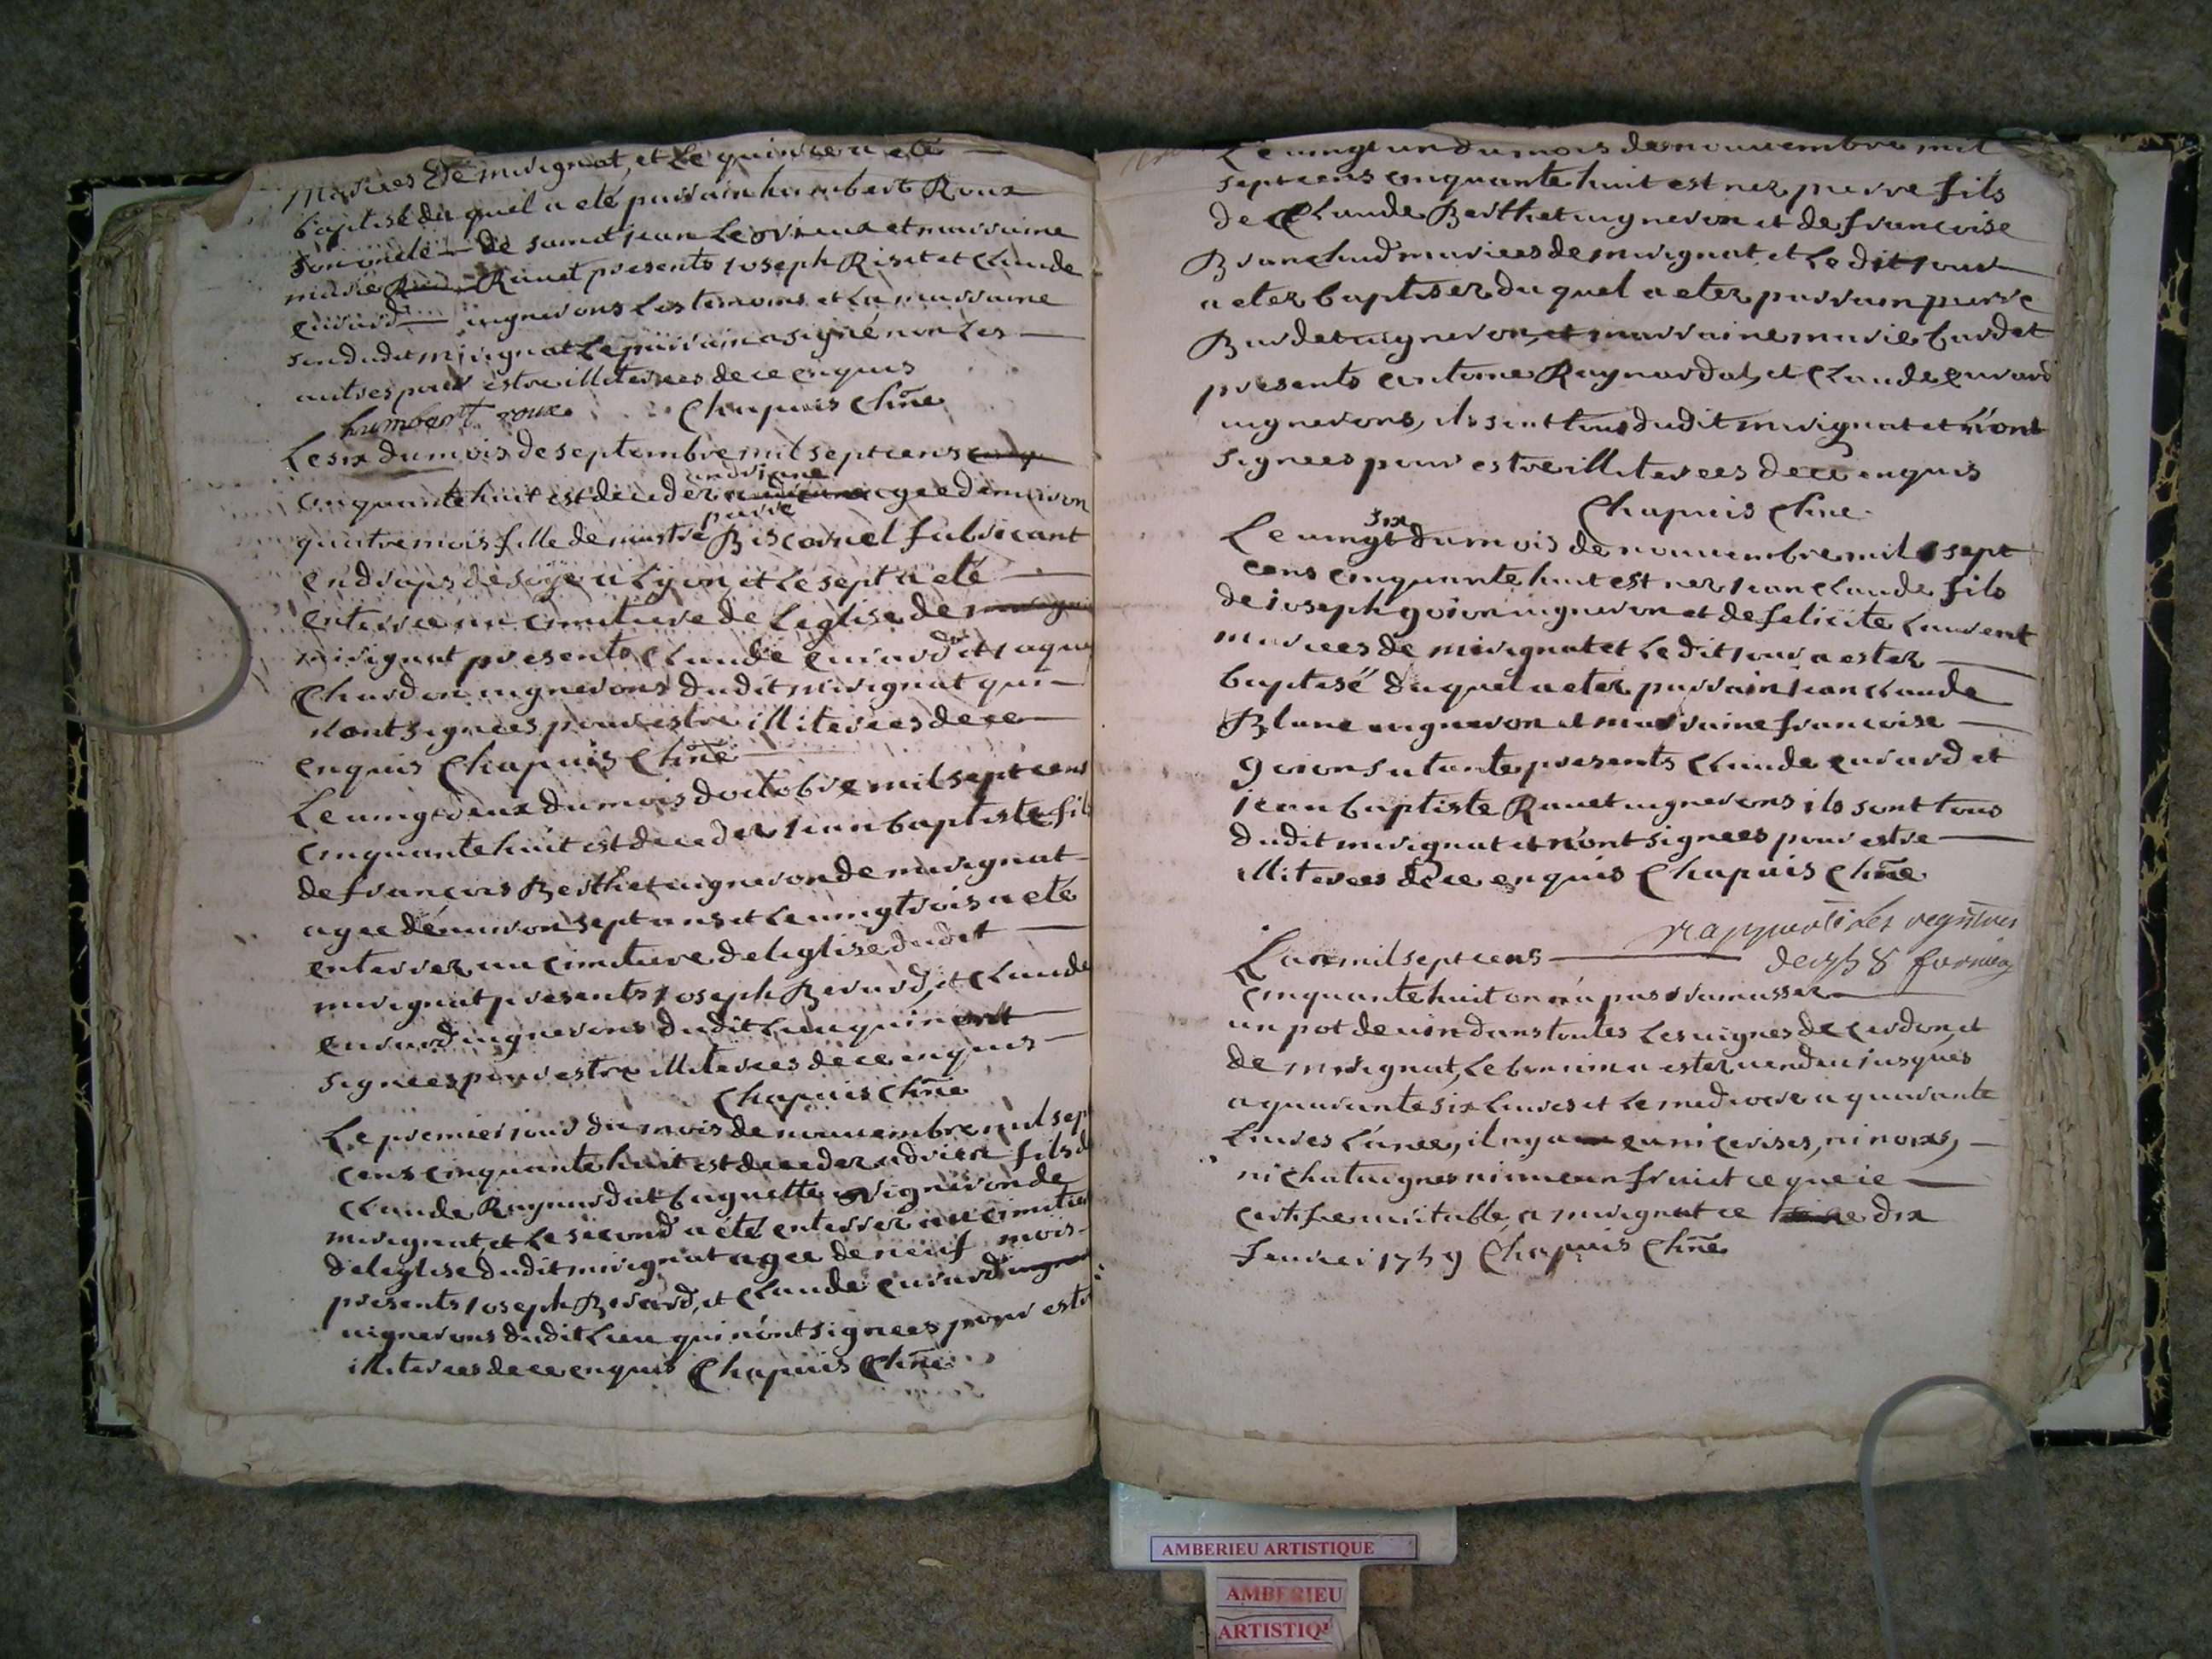 Mariees de mirignat, et le quinze a eté
baptisé du quel a eté parrain humbert Roux
son oncle de saint jean le vieux et marraine
marie Ravet presents ioseph Riset et Claude
euvrard vignerons les temoins et la marraine
sendudit mirignat le parrain a signé non les
autres pour estre illiterees de ce enquis
humbert roux Chapuis Chñe
Le six du mois de septembre mil sept cens cinq
andriane
cinquante huit est decedez agee denviron
pierre
quatre mois fille de maistre Biscornel fabricant
en draps de soye a Lyon et le sept a eté
enterree au cimetiere de Leglise de mirign
mirignat presents Claude euvrard et iaque
Chardon vignerons dudit mirignat qui
nont signees pour estre illiterees de ce
enquis Chapuis Chñe
Le vingt deux du mois doctobre mil sept cens
Cinquante huit est decedez iean baptiste fils
de francois Berthet vigneron de mirignat
agee denviron sept ans et le vingt trois a eté
enterrez au cimetiere deleglise dudit
mirignat presents ioseph Berard, et Claude
euvrard vignerons dudit lieu qui n'ont
signees pour estre illiterees de ce enquis
Chapuis Chñe
Le premier iour du mois de nouuembre mil sep
cens cinquante huit est decedez adrien fils d
Claude Raynardat baguette vigneron de
mirignat, et le second a eté enterrez au cimetier
deleglise dudit mirignat agee de neuf mois
presents ioseph Berard, et Claude euvrard vigne
vignerons dudit lieu qui n'ont signees pour estr
illiterees de ce enquis Chapuis Chñe
Le vingt un du mois de nouuembre mil
sept cens cinquante huit est nez pierre fils
de Claude Berthet vigneron et de francoise
Branchud mariees de mirignat et le dit iour
a etez baptisez du quel a etez parrain pierre
Burdet vigneron, et marraine marie burdet
presents antoine Raynardat, et Claude euvrard
vignerons, ils sont tous dudit mirignat et n'ont
signees pour estre illiterees de ce enquis
Chapuis Chñe
six
Le vingt du mois de nouuembre mil sept
cens cinquante huit est nez iean claude fils
de ioseph goion vigneron et de felicite Laurent
mariees de mirignat et le dit iour a estez
baptisé duquel a etez parrain iean claude
Blanc vigneron et marraine francoise
goion sa tante presents Claude euvrard et
iean baptiste Ravet vignerons ils sont tous
dudit mirignat et n'ont signees pour estre
illiterees de ce enquis Chapuis Chñe
les registres
Lan mil sept cens de 1758
cinquante huit on n'a pas ramasser
un pot de vin dans toutes les vignes de cerdon, et
de mirignat, le bon vin a estez vendu iusques
a quarante six livres et le mediocre a quarante
livres L'anee, il ny a eu ni cerises, ni noix,
ni chataignes ni aucun fruict ce que ie
certifie veritable, a mirignat ce dix
Fevrier 1759 Chapuis Chñe
AMBERIEU ARTISTIQUE
AMBERIEU
ARTISTIQ